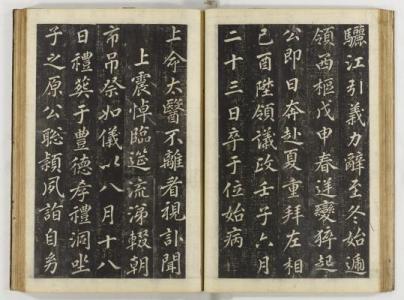 驪江引義力辭至冬始遞
領西樞戊申春逆變猝起
公即日奔赴夏重拜左相
己酉陞領議政壬子六月
二十三日卒于位始病
上命太醫不離者視訃聞
上震悼臨筵流涕輟朝
市吊祭如儀以八月十八
日禮葬于豊德孝禮洞坐
子之原公聡頴夙詣自㓜